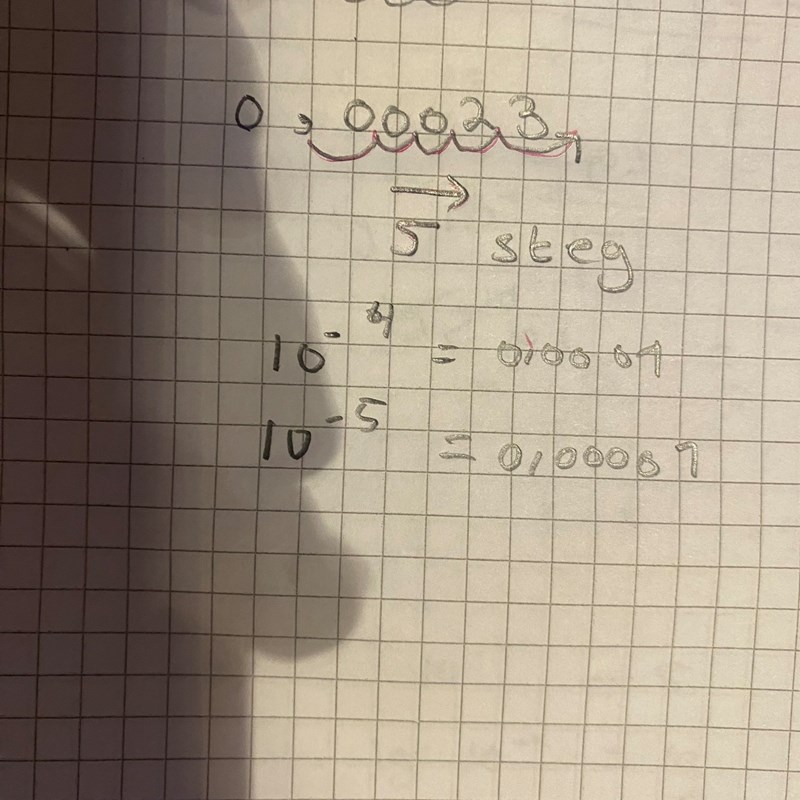 0,00023
5 steg
10^-4 = 0,0001
10^-5 = 0,00001